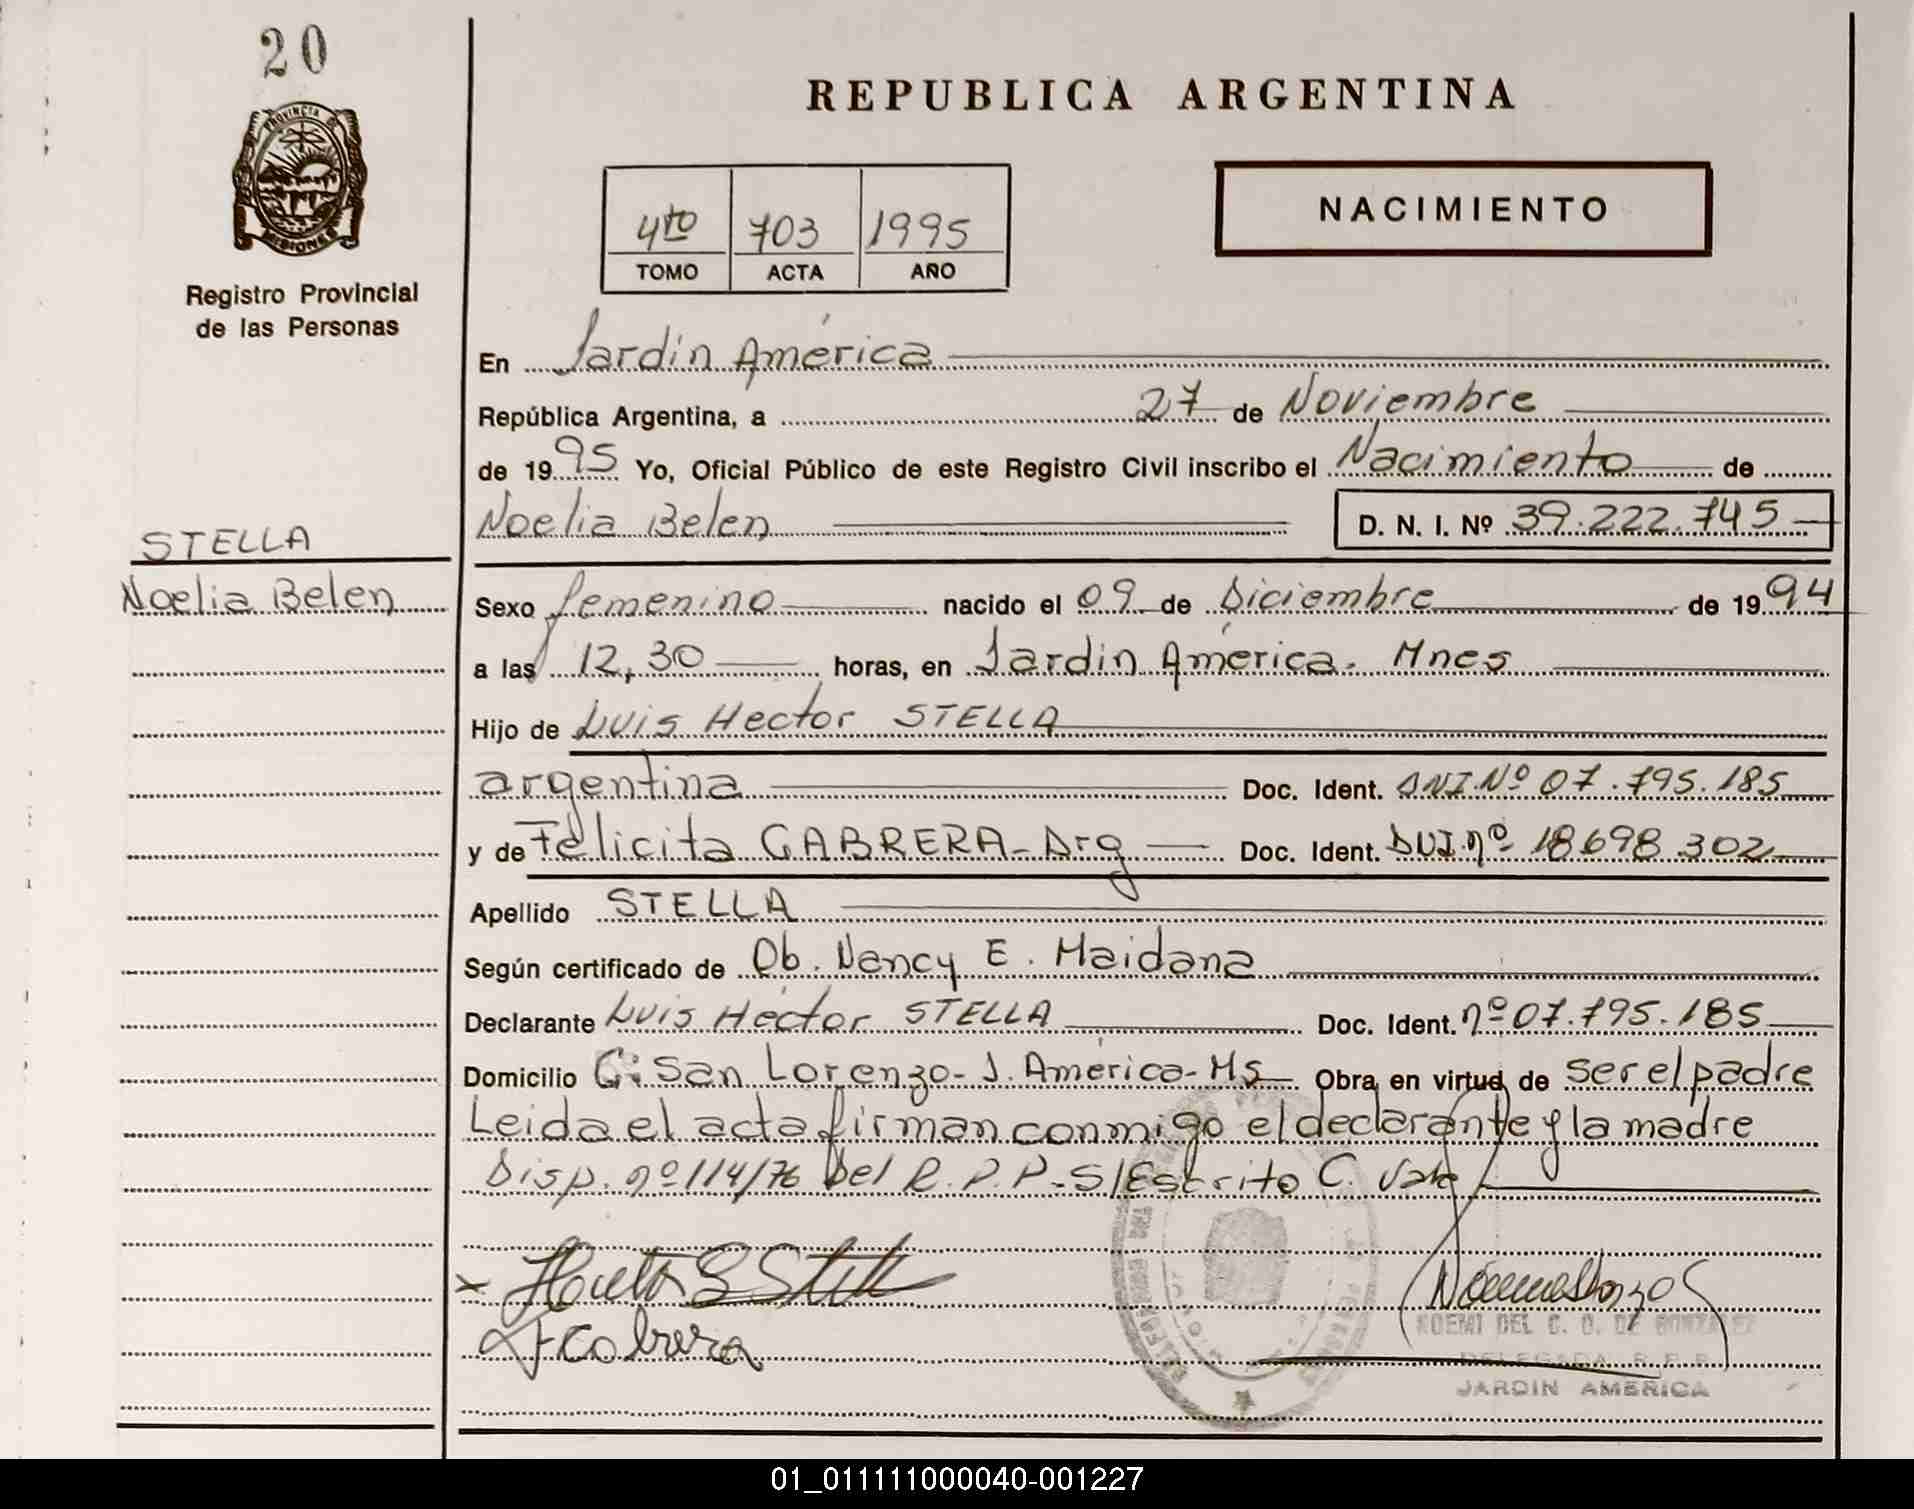 20
PROVINCIA D
MISIONES
Registro Provincial
de las Personas
REPUBLICA ARGENTINA
4to 703 1995
TOMO ACTA AÑO
NACIMIENTO
En Jardín América
República Argentina, a 27 de Noviembre
de 1995 Yo, Oficial Público de este Registro Civil inscribo el Nacimiento de
Noelia Belen D. N. I. Nº 39.222.745
STELLA
Noelia Belen
Sexo femenino nacido el 09 de Diciembre de 1994
a las 12,30 horas, en Jardín América. Mnes
Hijo de Luis Hector STELLA
argentina Doc. Ident. DNI.Nº 07.795.185
y de Felicita CABRERA - Arg Doc. Ident. DUI.nº 18698302
Apellido STELLA
Según certificado de Ob. Nancy E. Maidana
Declarante Luis Héctor STELLA Doc. Ident. nº 07.795.185
Domicilio San Lorenzo - J. América - Ms Obra en virtud de ser el padre
Leida el acta firman conmigo el declarante y la madre
Disp. nº 114/76 Del R.P.P - S/Escrito C. Vale
F Cabrera
NOEMI DEL C. O. DE GONZALEZ
DELEGADA R. P. P.
JARDIN AMERICA
01_011111000040-001227